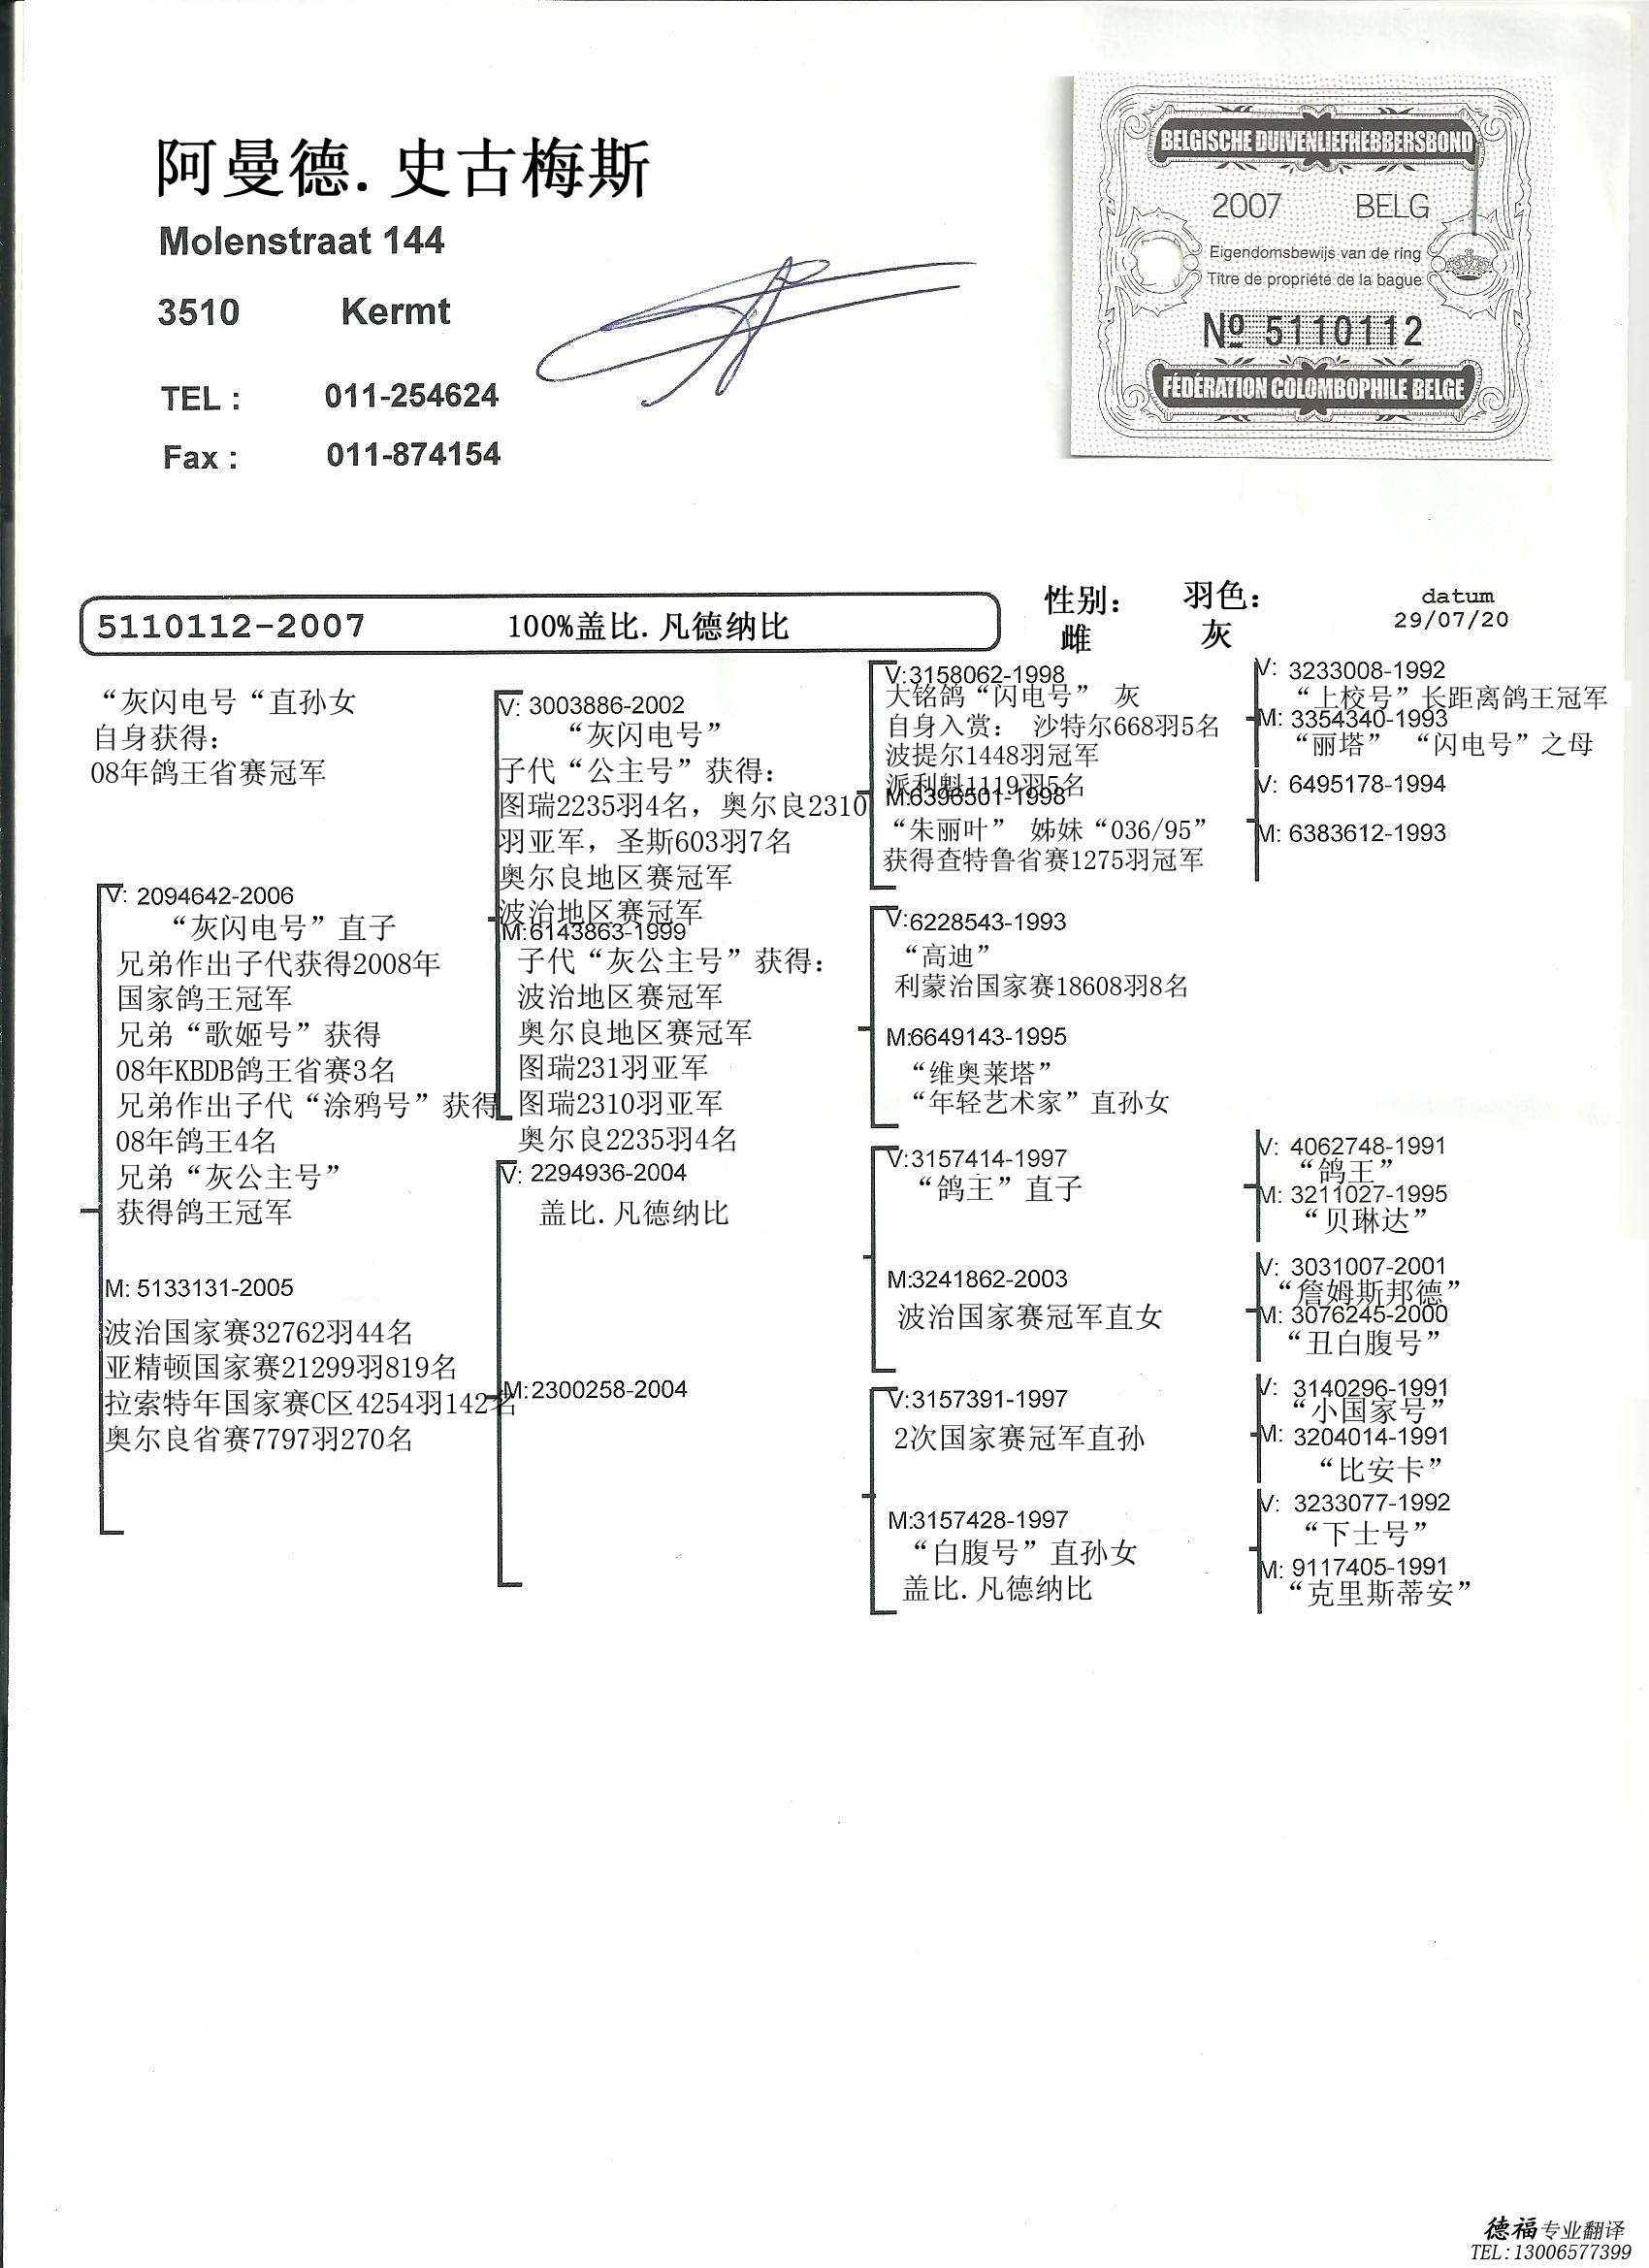 阿曼德.史古梅斯
Molenstraat 144
3510 Kermt
TEL : 011-254624
Fax : 011-874154
BELGISCHE DUIVENLIEFHEBBERSBOND
2007 BELG
Eigendomsbewijs van de ring
Titre de propriété de la bague
Nº 5110112
FÉDÉRATION COLOMBOPHILE BELGE
5110112-2007 100%盖比.凡德纳比
性别： 羽色： datum
雌 灰 29/07/20
“灰闪电号“直孙女
自身获得：
08年鸽王省赛冠军
V: 2094642-2006
“灰闪电号”直子
兄弟作出子代获得2008年
国家鸽王冠军
兄弟“歌姬号”获得
08年KBDB鸽王省赛3名
兄弟作出子代“涂鸦号”获得
08年鸽王4名
兄弟“灰公主号”
获得鸽王冠军
M: 5133131-2005
波治国家赛32762羽44名
亚精顿国家赛21299羽819名
拉索特年国家赛C区4254羽142名
奥尔良省赛7797羽270名
V: 3003886-2002
“灰闪电号”
子代“公主号”获得：
图瑞2235羽4名，奥尔良2310
羽亚军，圣斯603羽7名
奥尔良地区赛冠军
波治地区赛冠军
M:6143863-1999
子代“灰公主号”获得：
波治地区赛冠军
奥尔良地区赛冠军
图瑞231羽亚军
图瑞2310羽亚军
奥尔良2235羽4名
V: 2294936-2004
盖比.凡德纳比
M:2300258-2004
V:3158062-1998
大铭鸽“闪电号” 灰
自身入赏： 沙特尔668羽5名
波提尔1448羽冠军
派利魁1119羽5名
M:6396501-1998
“朱丽叶” 姊妹“036/95”
获得查特鲁省赛1275羽冠军
V:6228543-1993
“高迪”
利蒙治国家赛18608羽8名
M:6649143-1995
“维奥莱塔”
“年轻艺术家”直孙女
V:3157414-1997
“鸽王”直子
M:3241862-2003
波治国家赛冠军直女
V:3157391-1997
2次国家赛冠军直孙
M:3157428-1997
“白腹号”直孙女
盖比.凡德纳比
V: 3233008-1992
“上校号”长距离鸽王冠军
M: 3354340-1993
“丽塔” “闪电号”之母
V: 6495178-1994
M: 6383612-1993
V: 4062748-1991
“鸽王”
M: 3211027-1995
“贝琳达”
V: 3031007-2001
“詹姆斯邦德”
M: 3076245-2000
“丑白腹号”
V: 3140296-1991
“小国家号”
M: 3204014-1991
“比安卡”
V: 3233077-1992
“下士号”
M: 9117405-1991
“克里斯蒂安”
德福专业翻译
TEL:13006577399